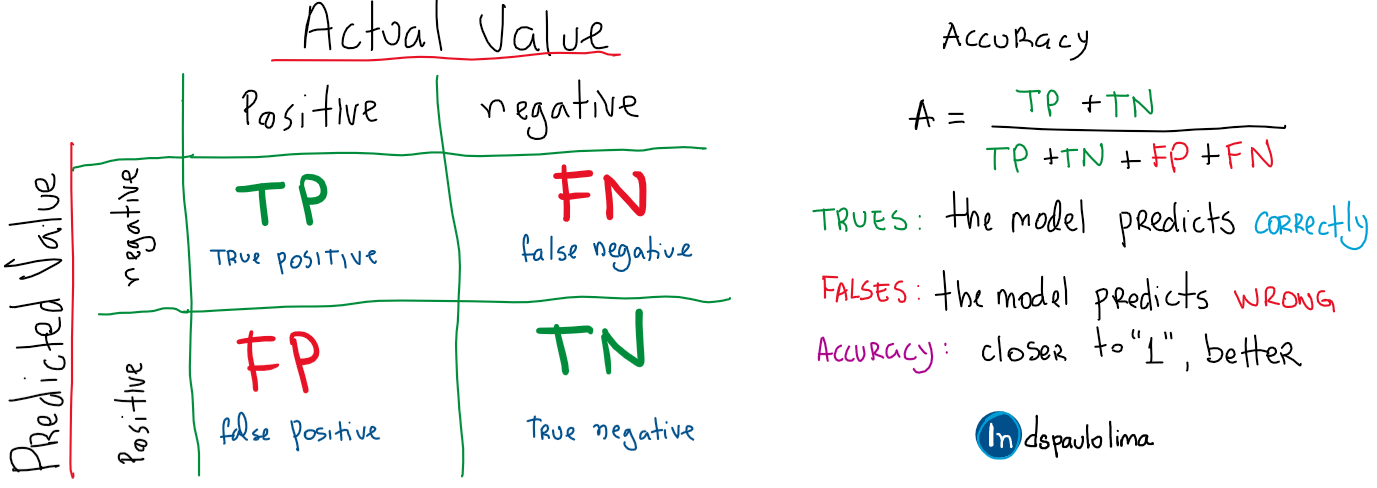 Actual Value
Positive negative
Predicted Value
negative
TP FN
True positive false negative
Positive
FP TN
false positive True negative
Accuracy
A = TP + TN
TP + TN + FP + FN
TRUES: the model predicts correctly
FALSES: the model predicts WRONG
Accuracy: closer to "1", better
In dspaulolima